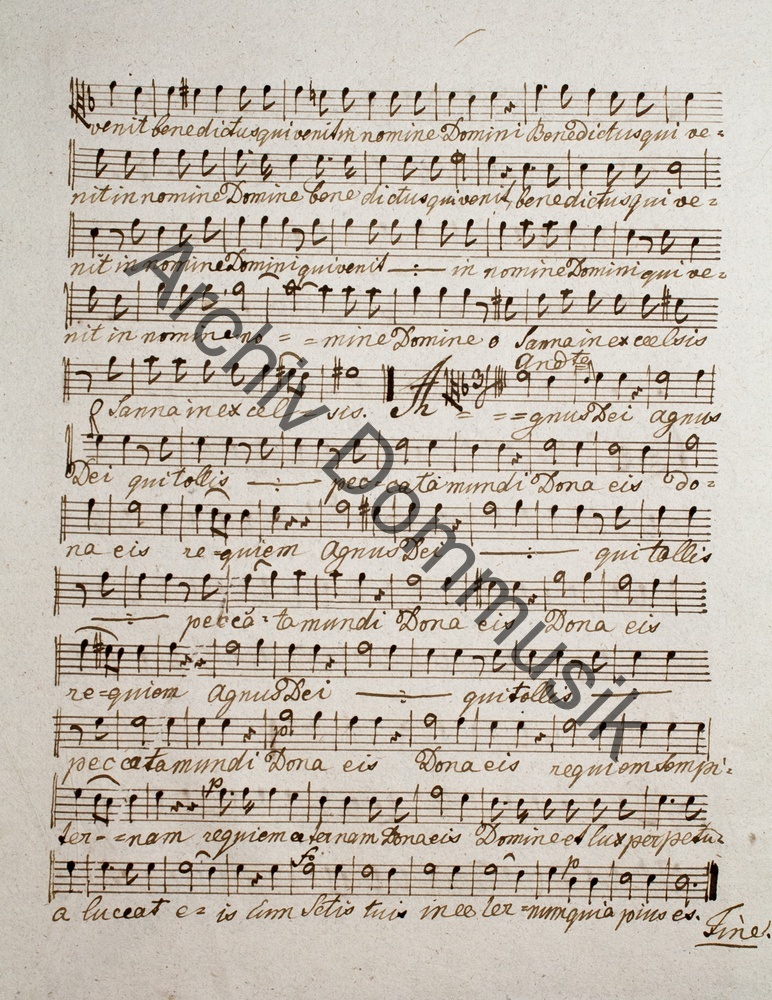 venit benedictus qui venit in nomine Domini Benedictus qui ve=
nit in nomine Domine bene dictus qui venit, benedictus qui ve=
nit in nomine Domini qui venit —:— in nomine Domini qui ve=
nit in nomine no = = mine Domine o Sanna in excelsis
And.te
O Sanna in excel = sis. A = = = gnus Dei agnus
Dei qui tollis —:— pec-ca ta mundi Dona eis do=
na eis re=quiem Agnus Dei —:— qui tollis
—:— pecca=ta mundi Dona eis Dona eis
re=quiem agnus Dei —:— qui tollis —
p.
peccata mundi Dona eis Dona eis requiem sempi=
p
ter-=nam requiem aeternam Dona eis Domine et lux perpetu=
fo p
a luceat e= is Cum Sctis tuis in ae ter =num quia pius es.
Fine.
Archiv Dommusik